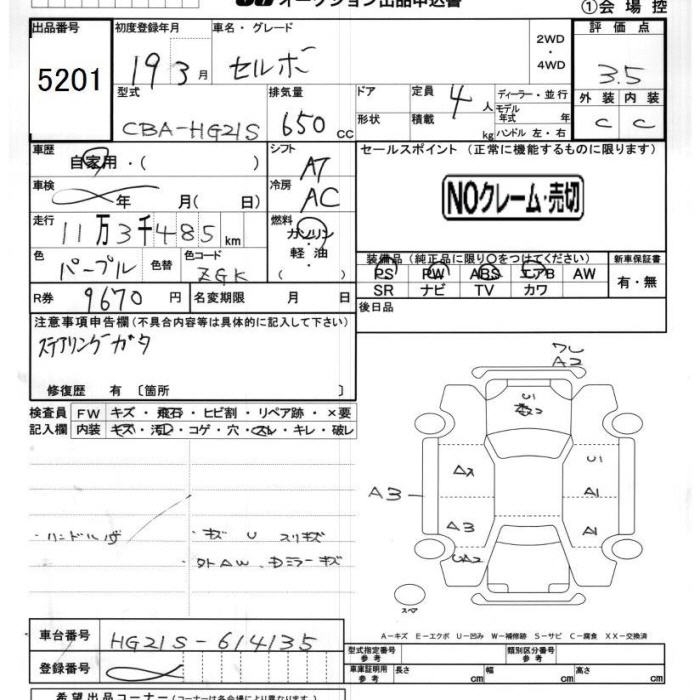 オークション出品申込書
①会場控
出品番号
5201
初度登録年月
19 3月
車名・グレード
セルボ
2WD・4WD
評価点
3.5
外装 内装
C C
型式
CBA-HG21S
排気量
650 cc
ドア
形状
定員 4人
積載 kg
ディーラー・並行
モデル年式 年
ハンドル 左・右
車歴
自家用・( )
シフト
AT
車検
年 月( 日)
冷房
AC
走行
11万3千485km
燃料
ガソリン
軽油
( )
色
パープル
色替
色コード
ZGK
R券 9670円
名変期限 月 日
セールスポイント (正常に機能するものに限ります)
NOクレーム・売切
装備品 (純正品に限り〇をつけてください)
PS PW ABS エアB AW
SR ナビ TV カワ
新車保証書
有・無
後日品
注意事項申告欄 (不具合内容等は具体的に記入して下さい)
ステアリングガタ
修復歴 有 〔箇所 〕
検査員記入欄
FW キズ・飛石・ヒビ割・リペア跡・×要
内装 キズ・汚レ・コゲ・穴・スレ・キレ・破レ
・キズ U スリキズ
A2
U1
A3
A1
A3
A1
UA2
スペア
A－キズ E－エクボ U－凹み W－補修跡 S－サビ C－腐食 XX－交換済
車台番号
HG21S-614135
登録番号
型式指定番号 参考
類別区分番号 参考
車庫証明用 参考
長さ cm 幅 cm 高さ cm
希望出品コーナー (コーナーは各会場により異なります)